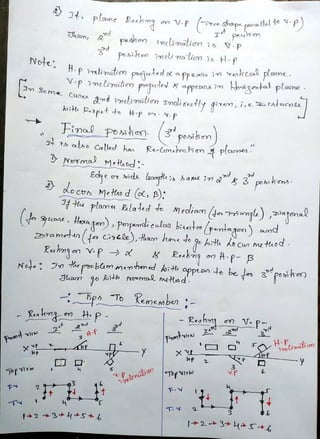 2) If, plane Resting on V.P (True shape parallel to V.P)
1st position
Then, 2nd position inclination is V.P
3rd position inclination is H.P
Note: H.P inclination projected & appears in vertical plane.
V.P inclination projected & appears in Horizontal plane.
[In Some Cases 2nd inclination Indirectly given, i.e Distance]
with Respect to H.P or V.P
→ Final position (3rd position)
It is also called has Re-Construction of planes."
1) Normal Method:-
Edge or side length is same in 2nd & 3rd positions.
2) Locus Method (α, β):
If the planes Related to Median (for Triangle), Diagonal
(for square, Hexagon), perpendicular bisector (pentagon) and
Diameter (for Circle), then have to go with Locus method.
Resting on V.P → α & Resting on H.P - β
Note: In the problem mentioned with appear to be for 3rd position
Then go with Normal method.
:- Tips To Remember :-
- Resting on H.P - - Resting on V.P -
Front view 1st 2nd 3rd Front view 1st 2nd 3rd
H.P
H.P inclination
X VP HP Y
X VP HP Y
Top view
V.P inclination
Top view
VP
F.V 2 3 6
T.V 1 4 5
F.V 1 4 5
T.V 2 3 6
1→2→3→4→5→6 1→2→3→4→5→6